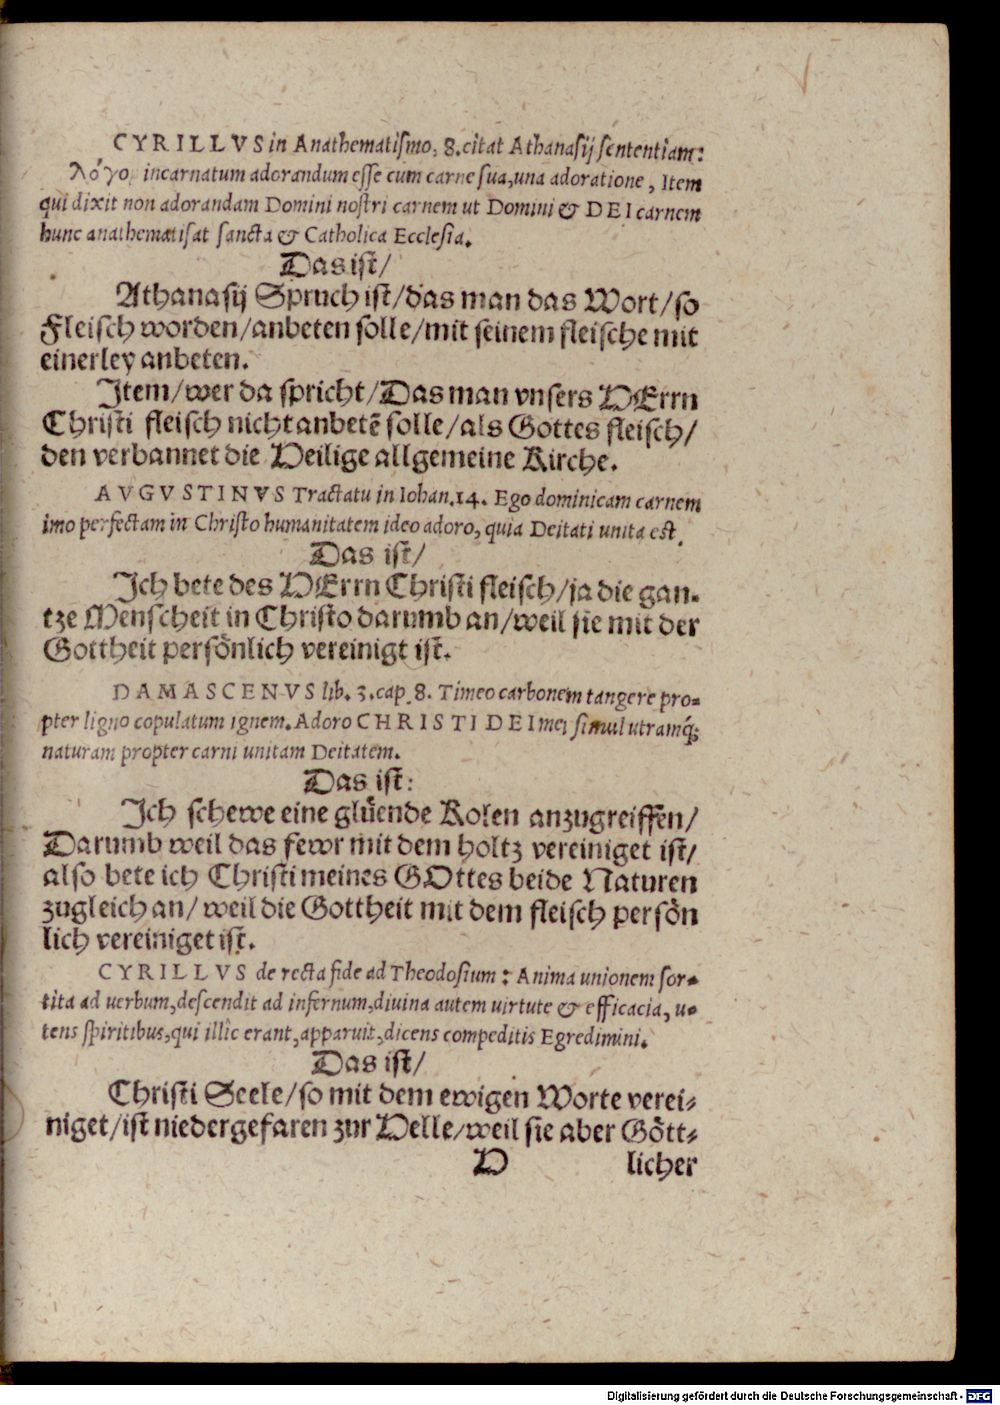 CYRILLVS in Anathematiſmo, 8. citat Athanaſij ſententiam:
λόγο incarnatum adorandum eſſe cum carne ſua, una adoratione, Item
qui dixit non adorandam Domini noſtri carnem ut Domini & DEI carnem
hunc anathematiſat ſancta & Catholica Eccleſia.
Das iſt/
Athanaſij Spruch iſt/das man das Wort/ſo
Fleiſch worden/anbeten ſolle/mit ſeinem fleiſche mit
einerley anbeten.
Item/wer da ſpricht/Das man vnſers HErrn
Chriſti fleiſch nicht anbetē ſolle/als Gottes fleiſch/
den verbannet die Heilige allgemeine Kirche.
AVGVSTINVS Tractatu in Iohan. 14. Ego dominicam carnem
imo perfectam in Chriſto humanitatem ideo adoro, quia Deitati unita est.
Das iſt/
Ich bete des HErrn Chriſti fleiſch/ja die gan-
tze Menſcheit in Chriſto darumb an/weil ſie mit der
Gottheit perſönlich vereinigt iſt.
DAMASCENVS lib. 3. cap. 8. Timeo carbonem tangere pro-
pter ligno copulatum ignem. Adoro CHRISTI DEI mei ſimul utramq́;
naturam propter carni unitam Deitatem.
Das iſt:
Ich ſchewe eine glüende Kolen anzugreiffen/
Darumb weil das fewr mit dem holtz vereiniget iſt/
alſo bete ich Chriſti meines GOttes beide Naturen
zugleich an/ weil die Gottheit mit dem fleiſch perſön
lich vereiniget iſt.
CYRILLVS de recta fide ad Theodoſium: Anima unionem ſor-
tita ad verbum, deſcendit ad infernum, divina autem virtute & efficacia, u-
tens ſpiritibus, qui illic erant, apparuit, dicens compeditis Egredimini.
Das iſt/
Chriſti Seele/ſo mit dem ewigen Worte verei-
niget/iſt niedergefaren zur Helle/weil ſie aber Gött-
H licher
Digitalisierung gefördert durch die Deutsche Forschungsgemeinschaft - DFG